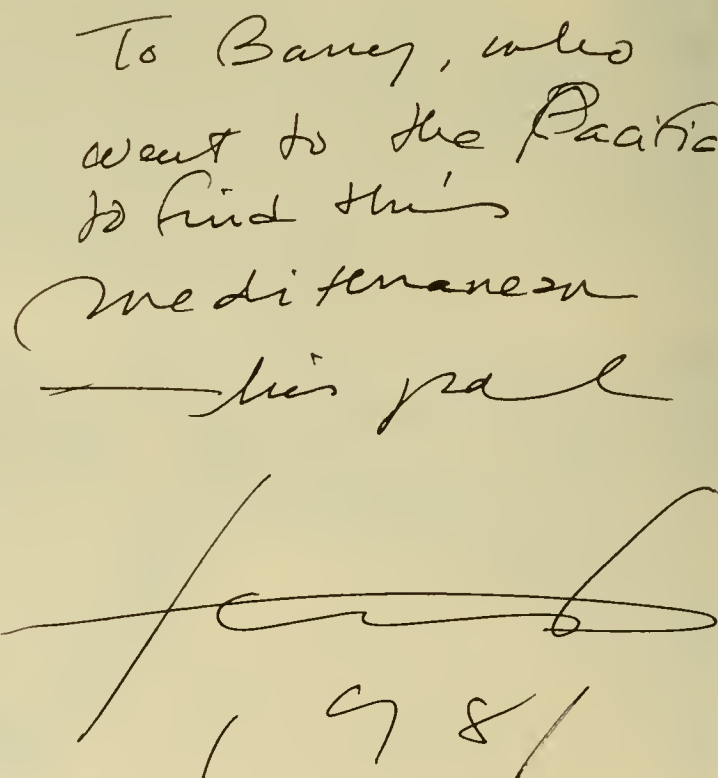 To Barney, who
went to the Pacific
to find this
mediterranean
— his pal
1981